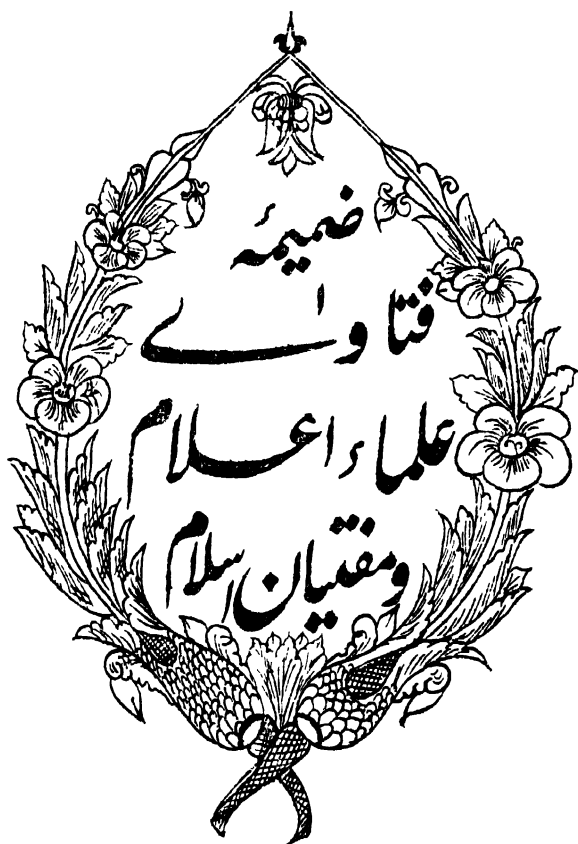 ضمیمۂ
فتاوٰے
علماء اعلام
و مفتیان اسلام